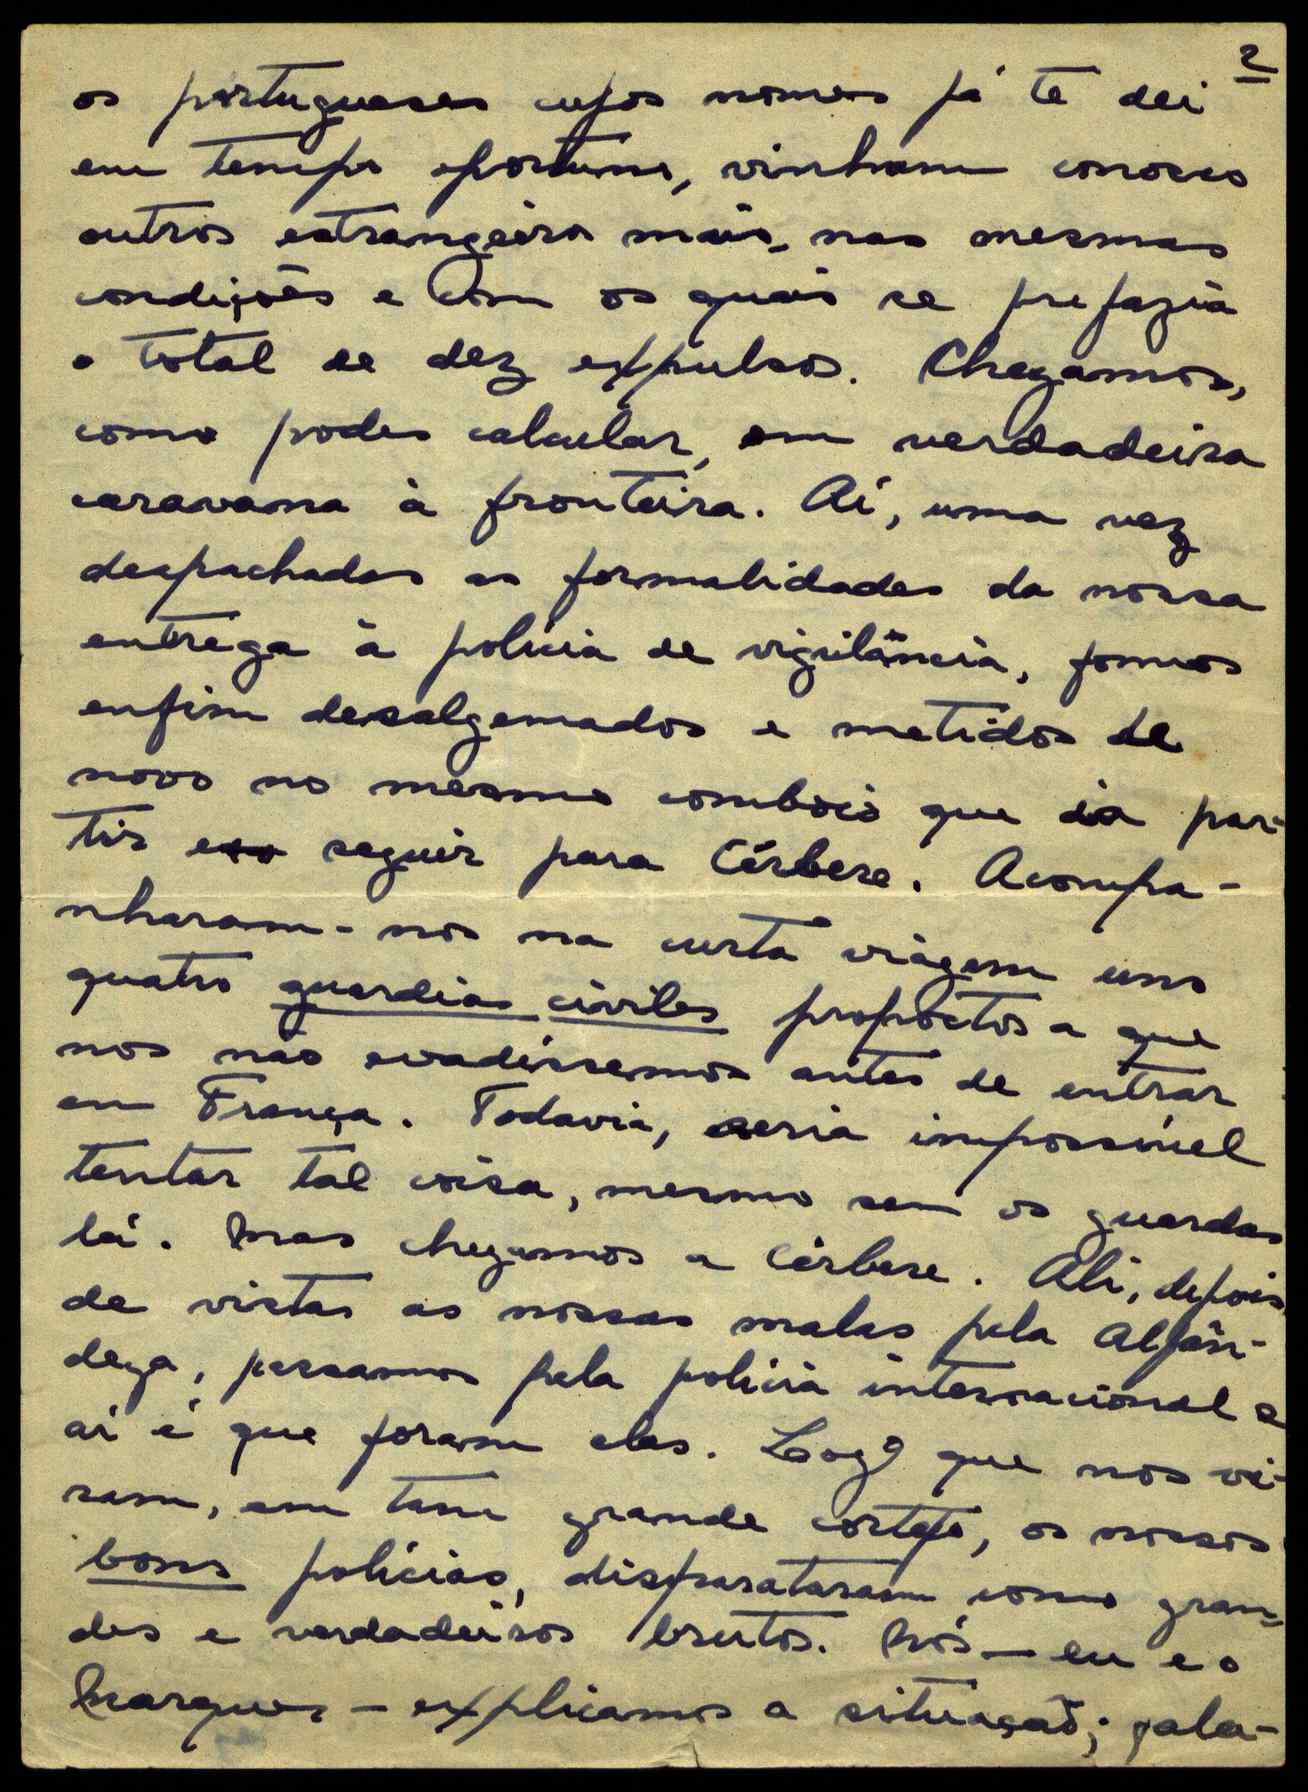 2
os portugueses cujos nomes já te dei
em tempo oportuno, vinham conosco
outros estrangeiros mais, nas mesmas
condições e com os quais se prefazia
o total de dez expulsos. Chegamos,
como podes calcular, em verdadeira
caravana à fronteira. Aí, uma vez
despachadas as formalidades da nossa
entrega à polícia de vigilância, fomos
enfim desalgemados e metidos de
novo no mesmo comboio que ia par-
tir seguir para Cérbere. Acompa-
nharam-nos na curta viagem uns
quatro guardias civiles propostos a que
nos não evadíssemos antes de entrar
em França. Todavia, seria impossível
tentar tal coisa, mesmo sem os guardas
lá. Mas chegamos a Cérbere. Ali, depois
de vistas as nossas malas pela Alfân-
dega, passamos pela polícia internacional e
aí é que foram elas. Logo que nos vi-
ram, em tam grande cortejo, os nossos
bons polícias, disparataram como gran-
des e verdadeiros brutos. Nós — eu e o
Marques — explicamos a situação; gala-